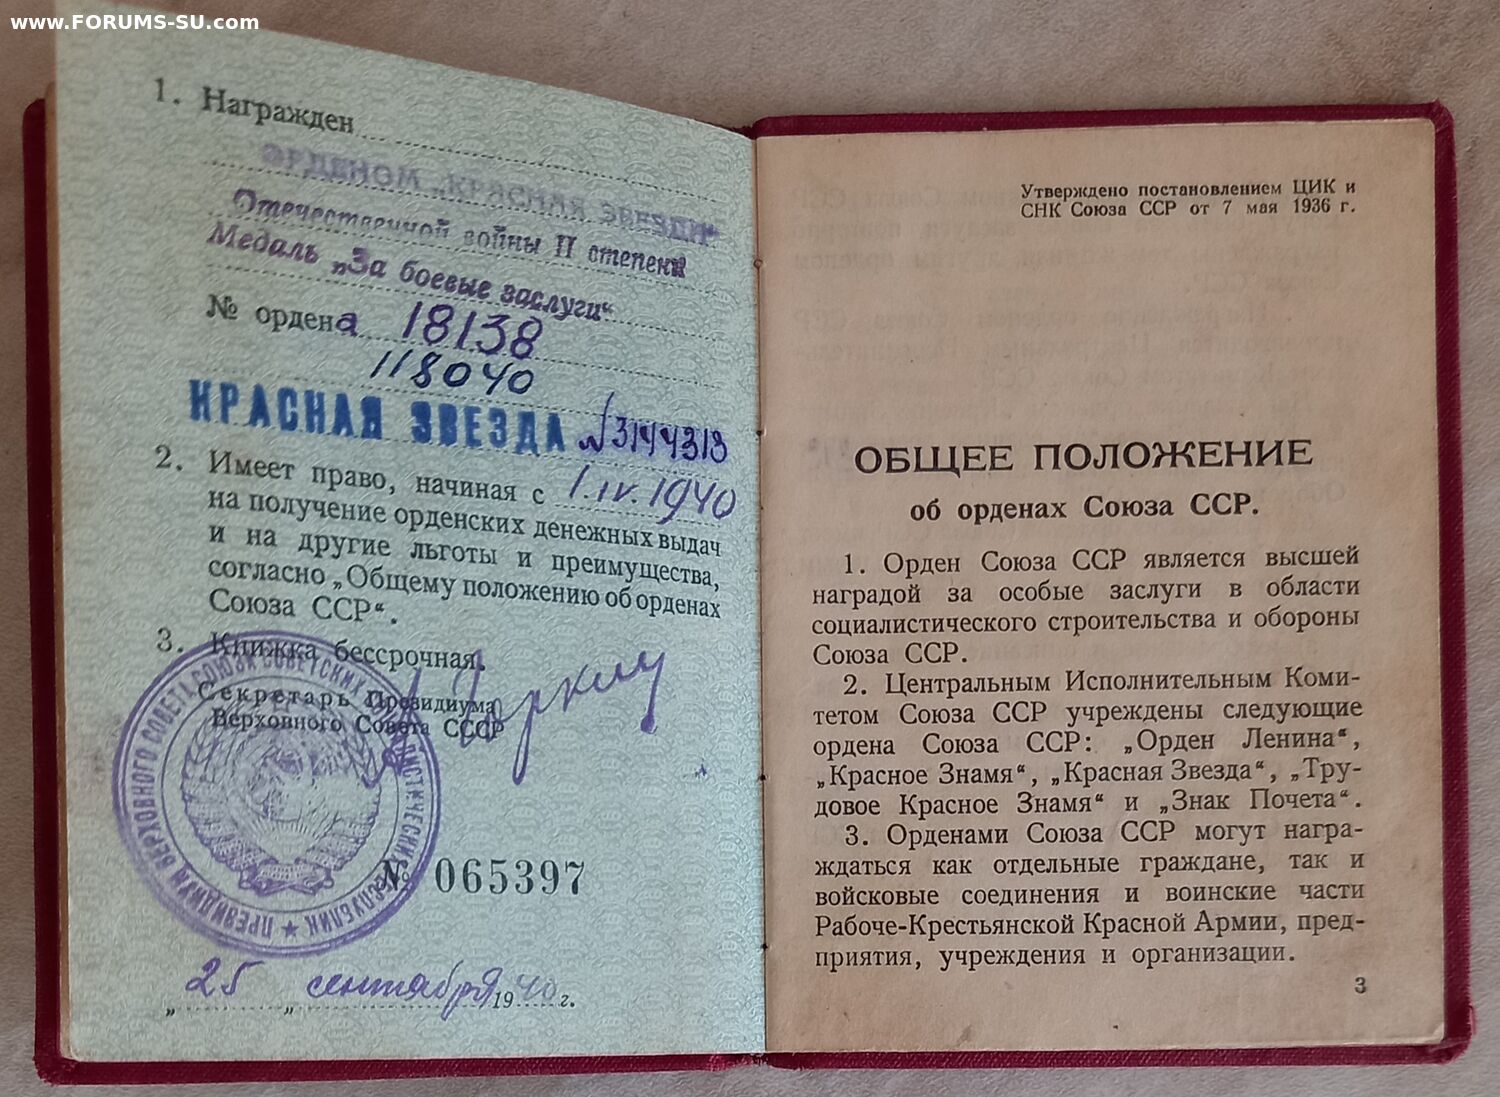 www.FORUMS-SU.com
1. Награжден
ОРДЕНОМ „КРАСНАЯ ЗВЕЗДА“
Отечественной войны II степени
Медаль „За боевые заслуги“
№ ордена 18138
118040
КРАСНАЯ ЗВЕЗДА №3144313
2. Имеет право, начиная с 1.IV.1940
на получение орденских денежных выдач
и на другие льготы и преимущества,
согласно „Общему положению об орденах
Союза ССР“.
3. Книжка бессрочная.
Секретарь Президиума
Верховного Совета СССР
ПРЕЗИДИУМ ВЕРХОВНОГО СОВЕТА СОЮЗА СОВЕТСКИХ РЕСПУБЛИК
№ 065397
„ 25 „ сентября 1940 г.
Утверждено постановлением ЦИК и
СНК Союза ССР от 7 мая 1936 г.
ОБЩЕЕ ПОЛОЖЕНИЕ
об орденах Союза ССР.
1. Орден Союза ССР является высшей
наградой за особые заслуги в области
социалистического строительства и обороны
Союза ССР.
2. Центральным Исполнительным Коми-
тетом Союза ССР учреждены следующие
ордена Союза ССР: „Орден Ленина“,
„Красное Знамя“, „Красная Звезда“, „Тру-
довое Красное Знамя“ и „Знак Почета“.
3. Орденами Союза ССР могут награ-
ждаться как отдельные граждане, так и
войсковые соединения и воинские части
Рабоче-Крестьянской Красной Армии, пред-
приятия, учреждения и организации.
3